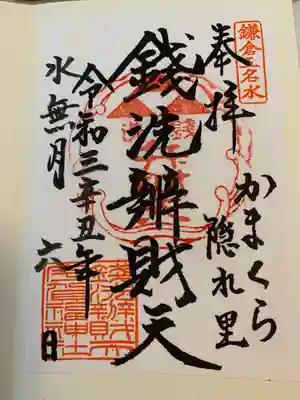 鎌倉五名水
奉拝
かまくら
隠れ里
錢洗辨財天
令和三辛丑年
水無月六日